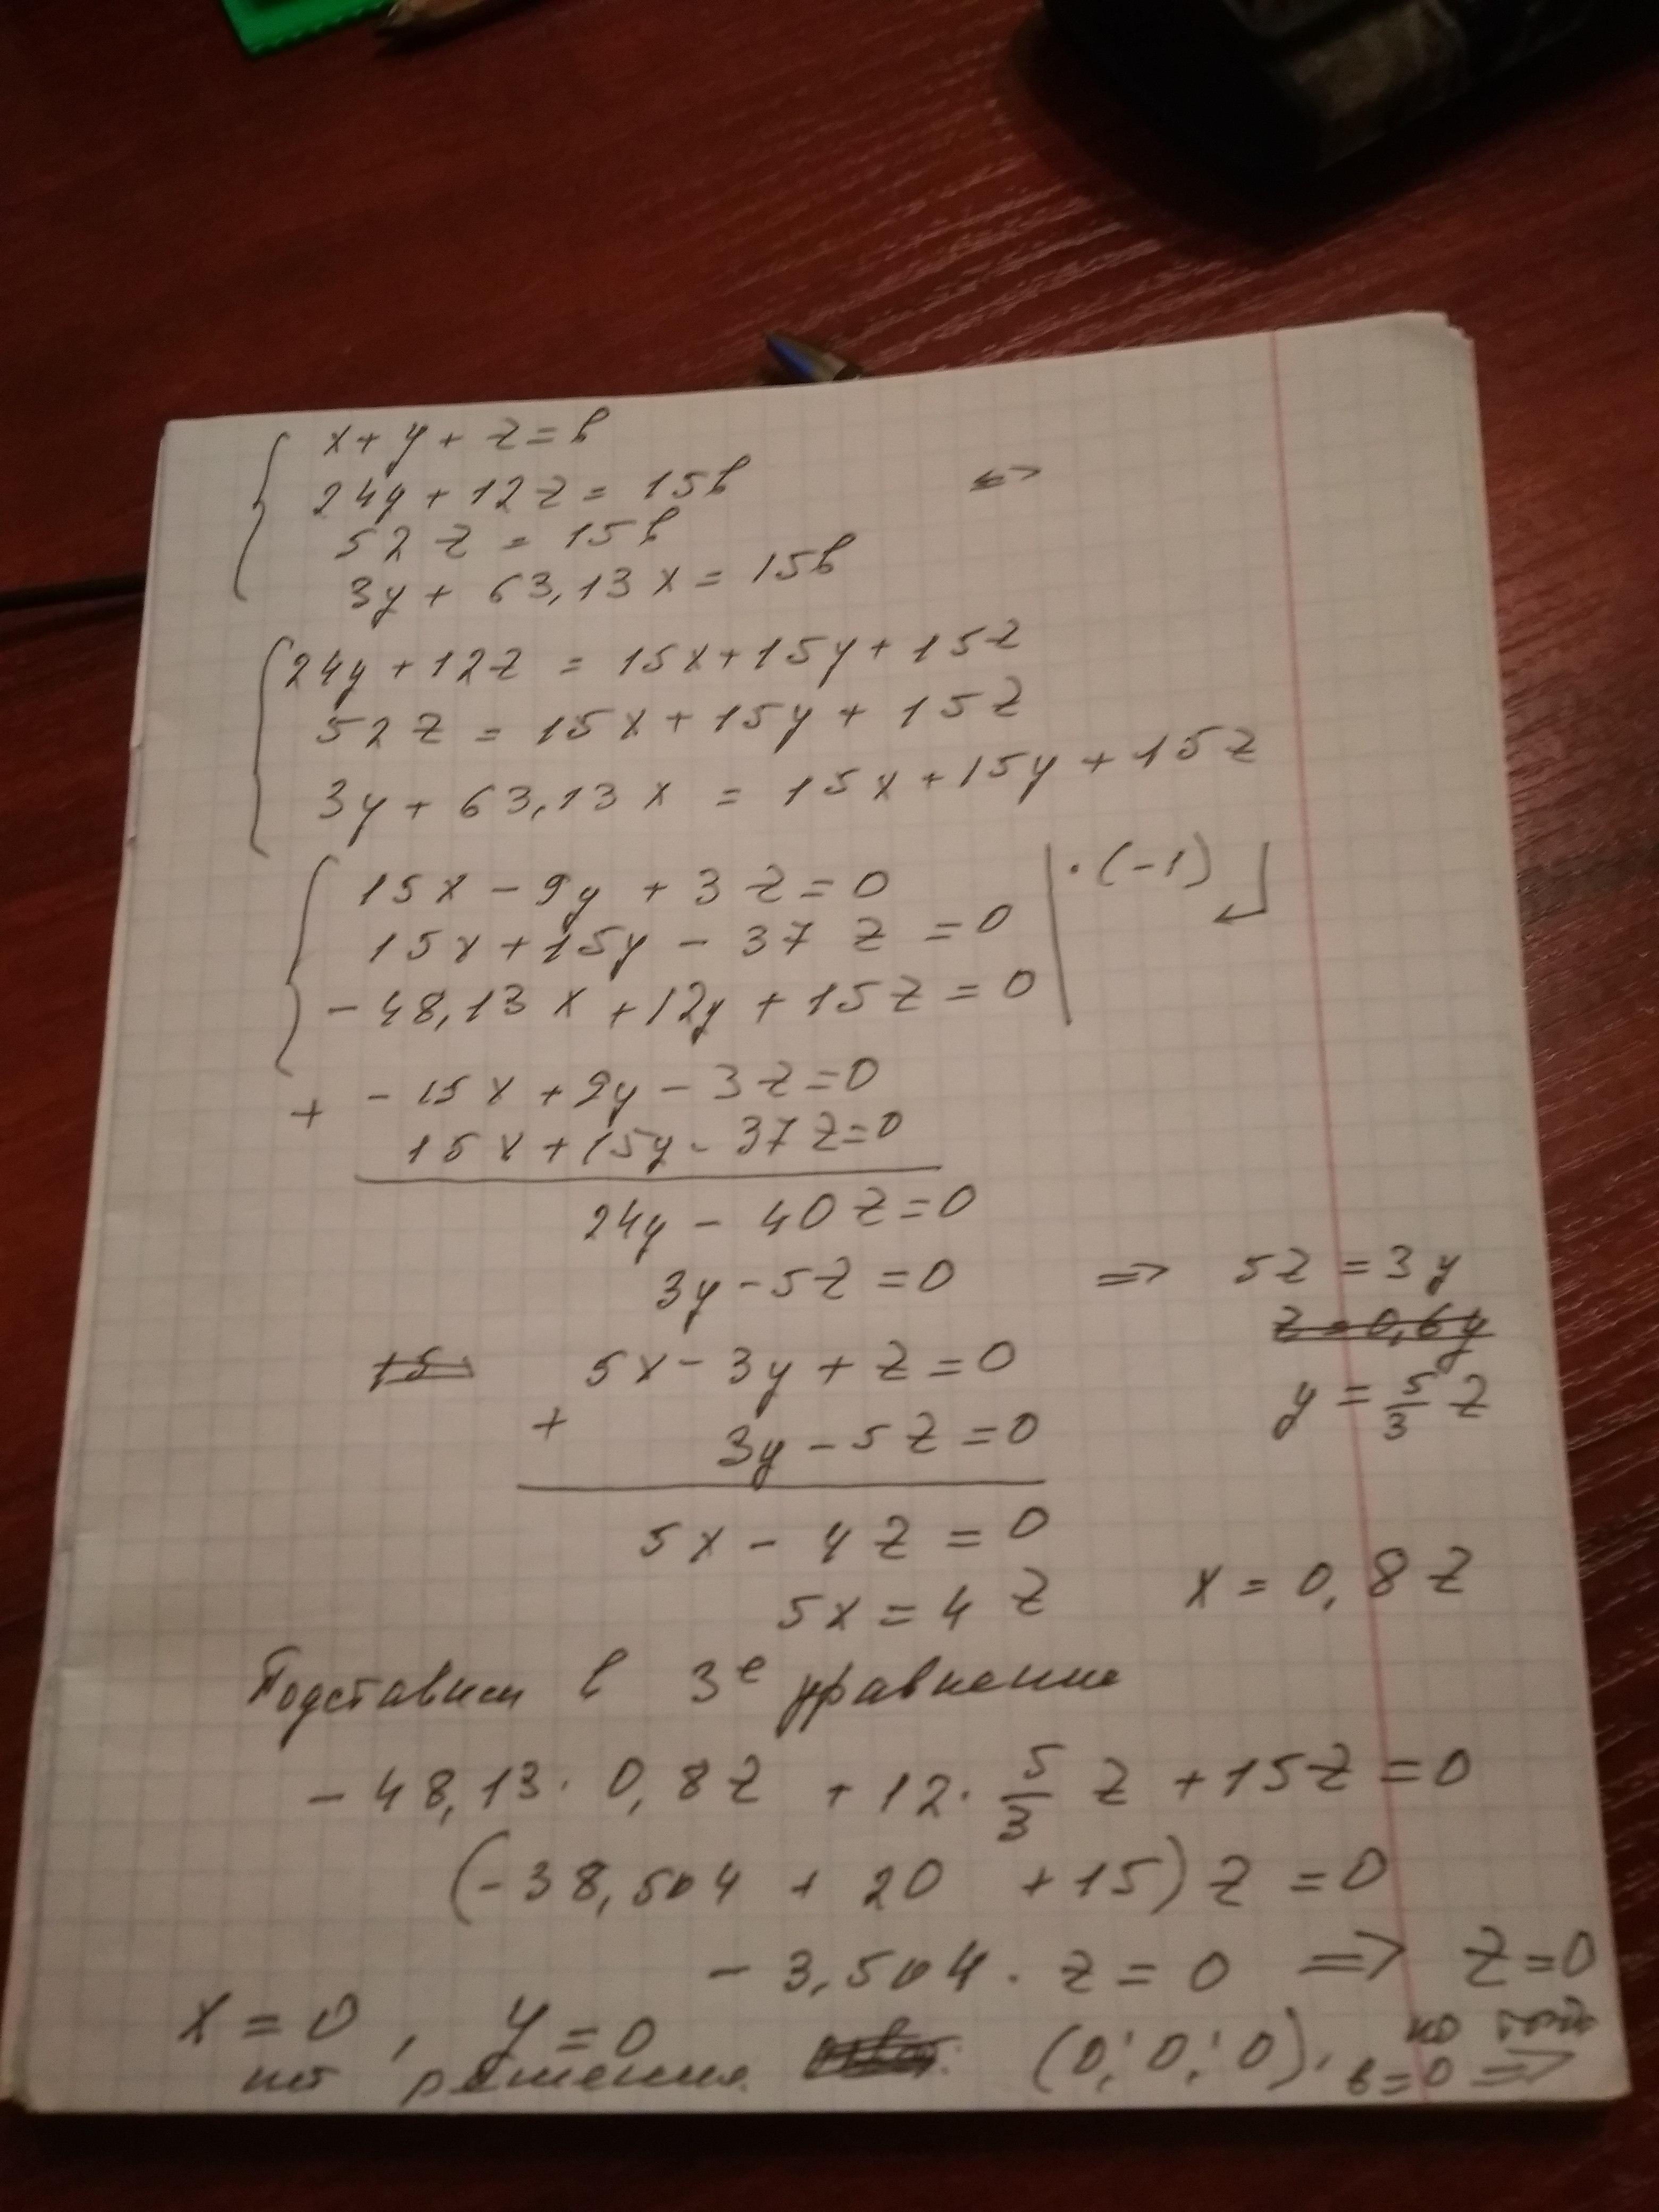 x + y + z = в
24y + 12z = 15в <=>
52z = 15в
3y + 63,13x = 15в
24y + 12z = 15x + 15y + 15z
52z = 15x + 15y + 15z
3y + 63,13x = 15x + 15y + 15z
15x - 9y + 3z = 0 | · (-1)
15x + 15y - 37z = 0
- 48,13x + 12y + 15z = 0
+ - 15x + 9y - 3z = 0
15x + 15y - 37z = 0
24y - 40z = 0
3y - 5z = 0 => 5z = 3y
z = 0,6y
15 5x - 3y + z = 0
y = 5/3 z
+ 3y - 5z = 0
5x - 4z = 0
5x = 4z x = 0,8z
Подставим в 3е уравнение
- 48,13 · 0,8z + 12 · 5/3 z + 15z = 0
(- 38,504 + 20 + 15) z = 0
- 3,504 · z = 0 => z = 0
x = 0, y = 0 (0; 0; 0), но тогда
в = 0 =>
нет решения.